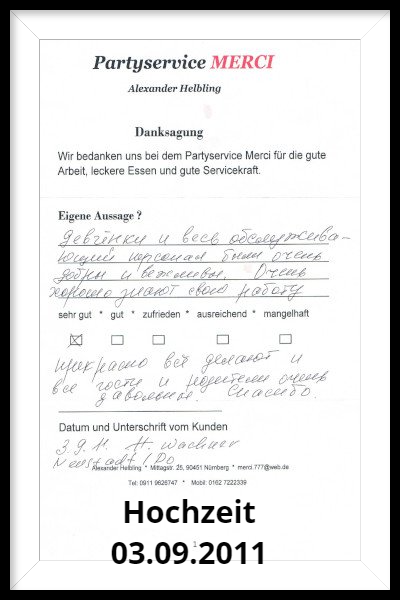 Partyservice MERCI
Alexander Helbling
Danksagung
Wir bedanken uns bei dem Partyservice Merci für die gute
Arbeit, leckere Essen und gute Servicekraft.
Eigene Aussage ?
Девчёнки и весь обслужива-
ющий персонал были очень
добры и вежливы. Очень
хорошо знают свою работу
sehr gut * gut * zufrieden * ausreichend * mangelhaft
прекрасно всё делают и
все гости и родители очень
довольные. Спасибо.
Datum und Unterschrift vom Kunden
3.9.11. H. Wachner
Neustadt / Do
Alexander Helbling * Mittagstr. 25, 90451 Nürnberg * merci.777@web.de
Tel: 0911 9626747 * Mobil: 0162 7222339
Hochzeit
03.09.2011